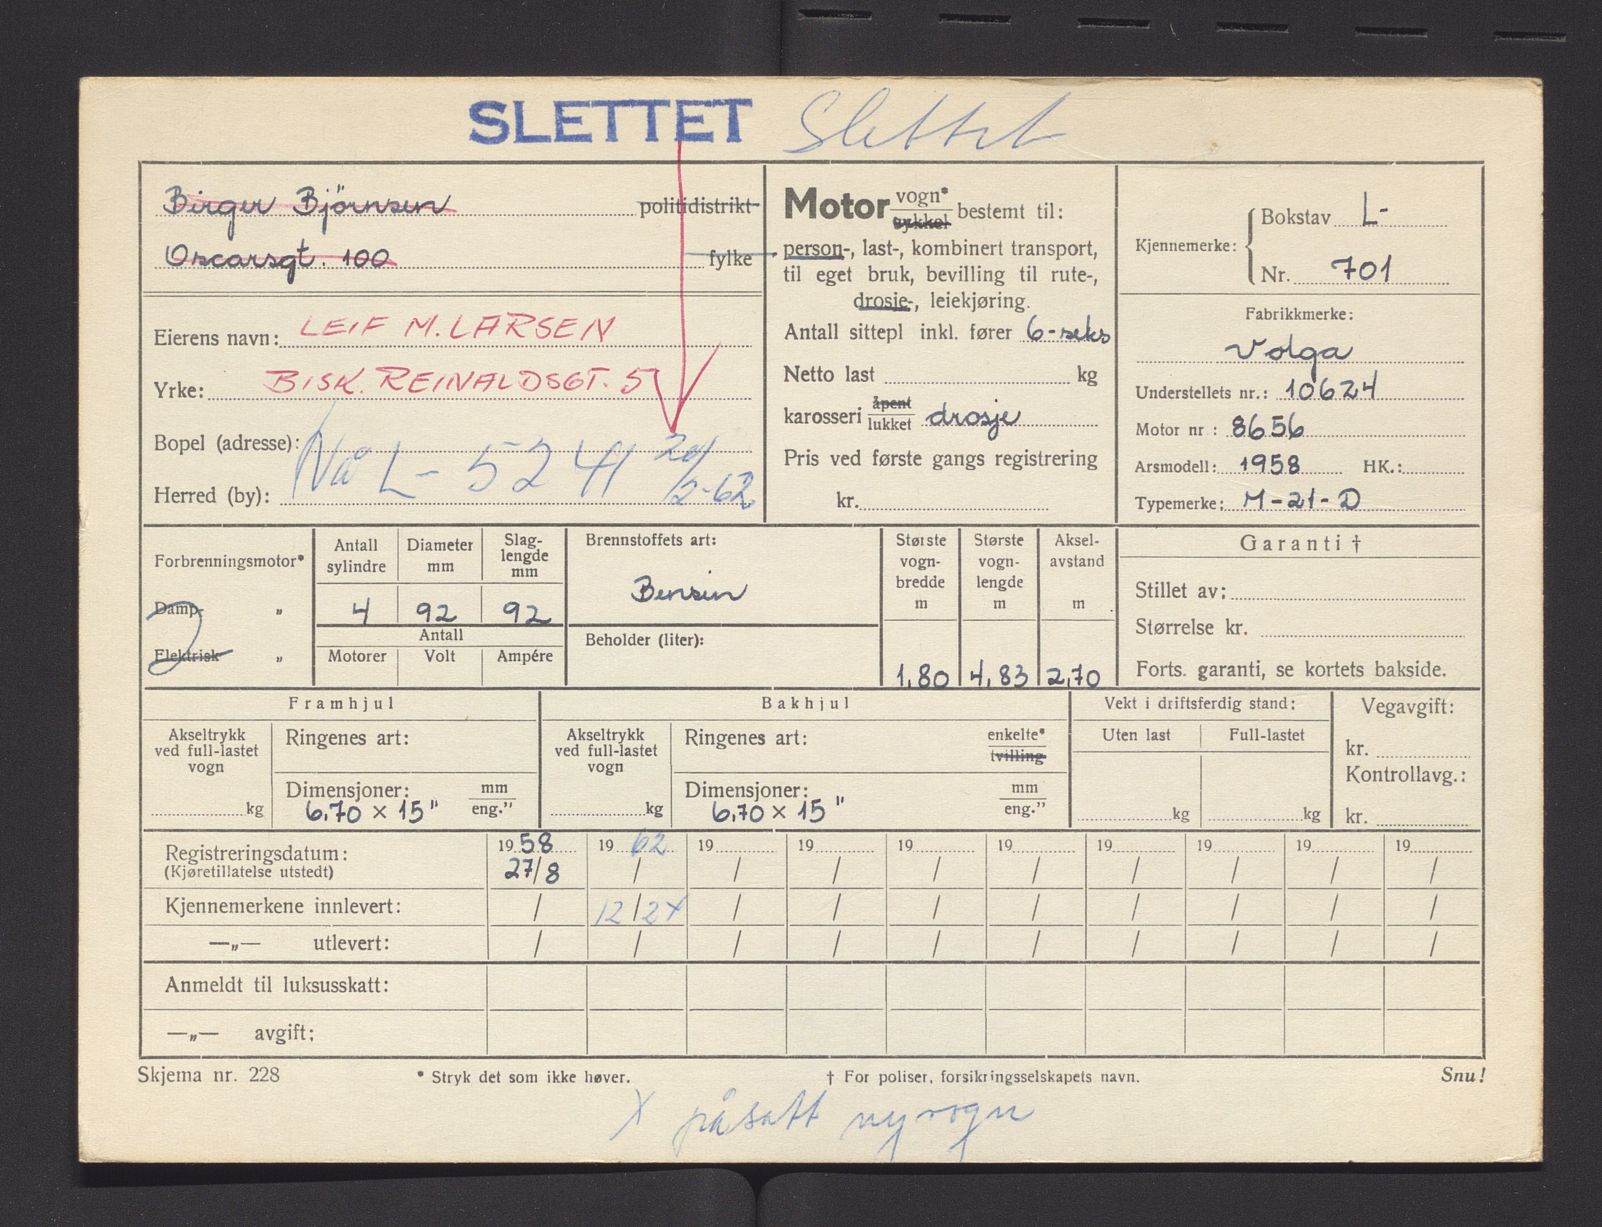 SLETTET Slettet
Birger Björnsen politidistrikt
Oscarsgt. 100 fylke
Eierens navn: LEIF M. LARSEN
Yrke: BISK. REINALDSGT. 5
Bopel (adresse):
Nå L- 5241
Herred (by):
Motor vogn* sykkel bestemt til:
person-, last-, kombinert transport,
til eget bruk, bevilling til rute-,
drosje-, leiekjøring.
Antall sittepl inkl. fører 6-seks
Netto last kg
karosseri åpent lukket drosje
Pris ved første gangs registrering
kr.
Kjennemerke: Bokstav L-
Nr. 701
Fabrikkmerke:
Volga
Understellets nr.: 10624
Motor nr: 8656
Arsmodell: 1958 HK.:
Typemerke: M-21-D
Forbrenningsmotor*
Damp- "
Elektrisk "
Antall sylindre
Diameter mm
Slag-lengde mm
4 92 92
Antall
Motorer Volt Ampére
Brennstoffets art:
Bensin
Beholder (liter):
Største vogn-bredde m
Største vogn-lengde m
Aksel-avstand m
1,80 4,83 2,70
Garanti †
Stillet av:
Størrelse kr.
Forts. garanti, se kortets bakside.
Framhjul
Akseltrykk ved full-lastet vogn
kg
Ringenes art:
Dimensjoner: mm eng."
6,70 × 15"
Bakhjul
Akseltrykk ved full-lastet vogn
kg
Ringenes art: enkelte* tvilling
Dimensjoner: mm eng."
6,70 × 15"
Vekt i driftsferdig stand:
Uten last Full-lastet
kg kg
Vegavgift:
kr.
Kontrollavg.:
kr.
1958 1962 19 19 19 19 19 19 19 19
Registreringsdatum:
(Kjøretillatelse utstedt) 27/8 / / / / / / / / /
Kjennemerkene innlevert: / 12/2 x / / / / / / / /
—„— utlevert: / / / / / / / / / /
Anmeldt til luksusskatt:
—„— avgift:
Skjema nr. 228 * Stryk det som ikke høver. † For poliser, forsikringsselskapets navn. Snu!
x påsatt ny vogn